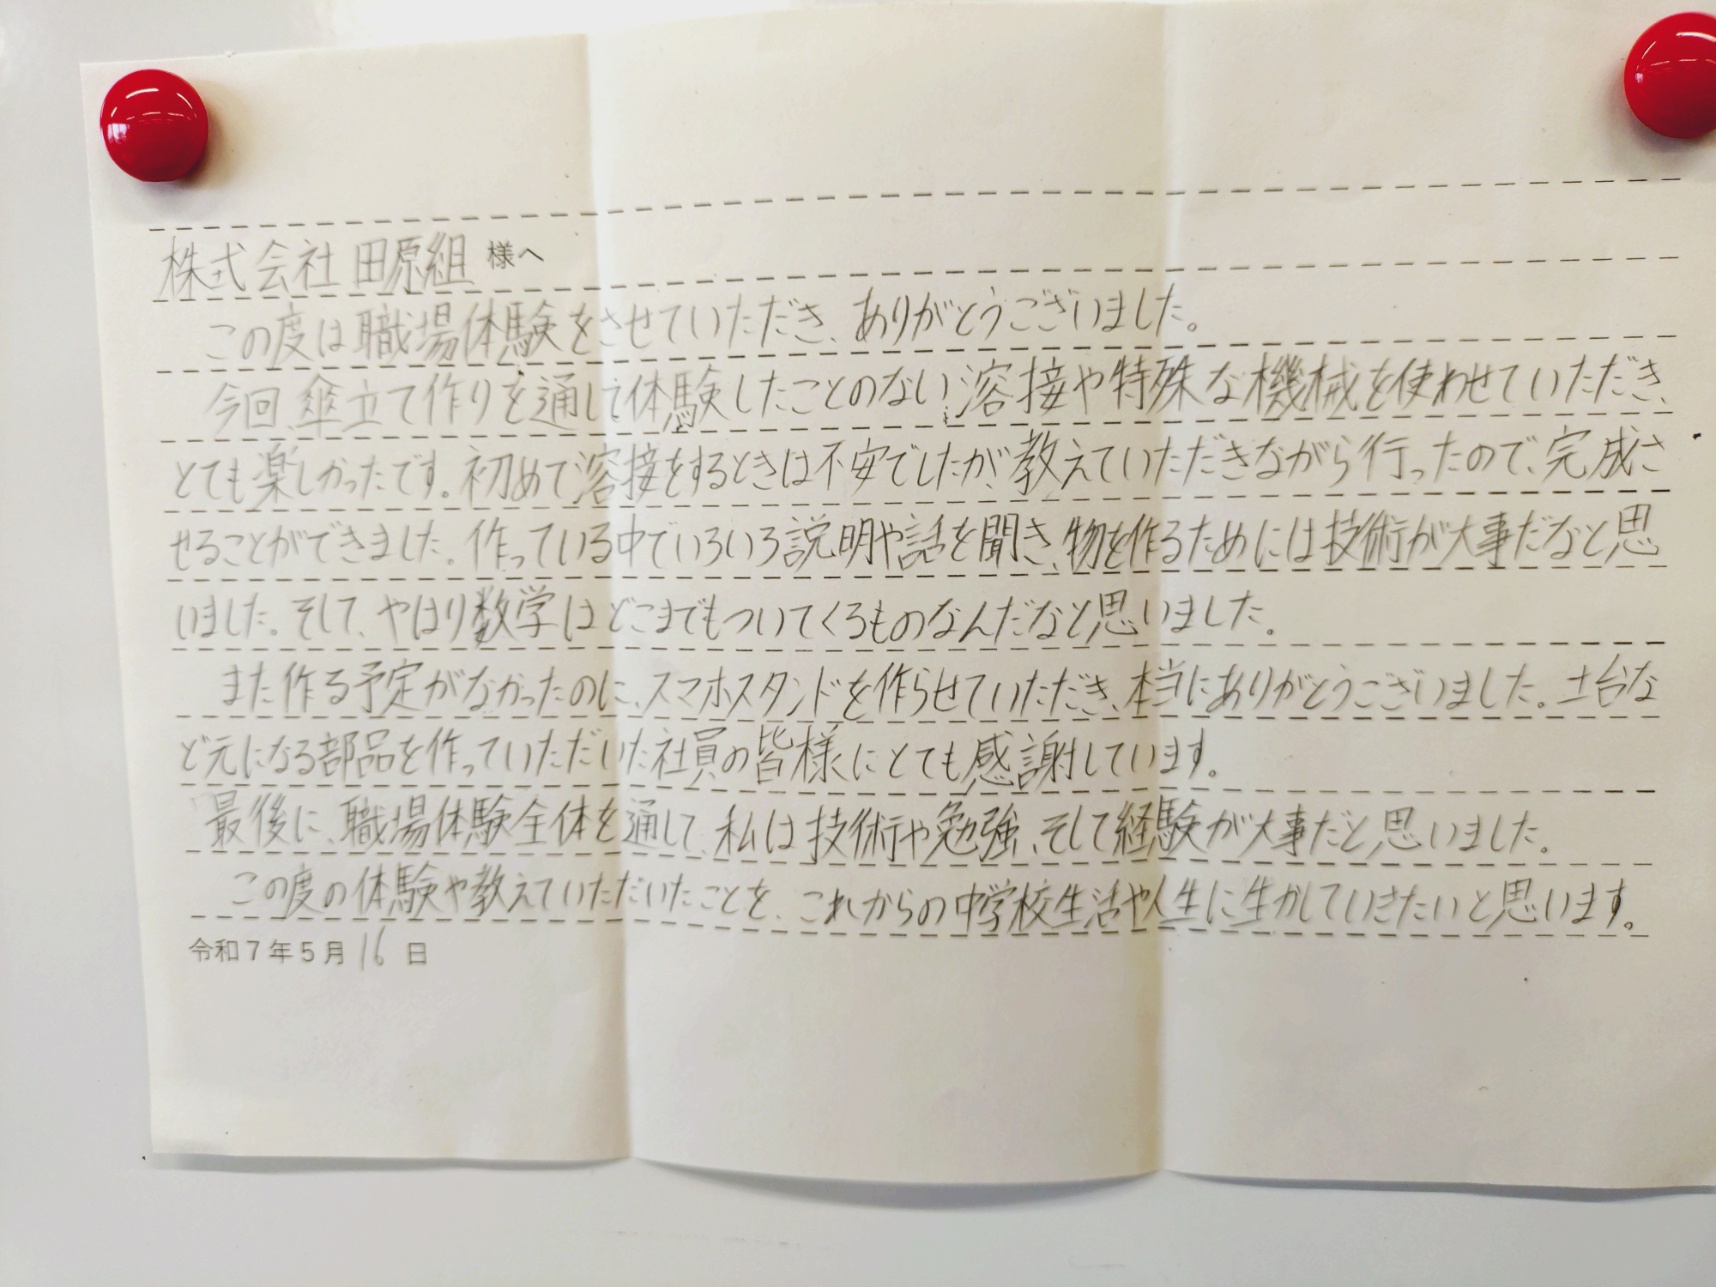 株式会社 田原組 様へ
この度は職場体験をさせていただき、ありがとうございました。
今回、傘立て作りを通して体験したことのない溶接や特殊な機械を使わせていただき、
とても楽しかったです。初めて溶接をするときは不安でしたが、教えていただきながら行ったので、完成さ
せることができました。作っている中でいろいろ説明や話を聞き、物を作るためには技術が大事だなと思
いました。そして、やはり数学はどこまでもついてくるものなんだなと思いました。
また作る予定がなかったのに、スマホスタンドを作らせていただき、本当にありがとうございました。土台な
ど元になる部品を作っていただいた社員の皆様にとても感謝しています。
最後に、職場体験全体を通して、私は技術や勉強、そして経験が大事だと思いました。
この度の体験や教えていただいたことを、これからの中学校生活や人生に生かしていきたいと思います。
令和7年5月16日